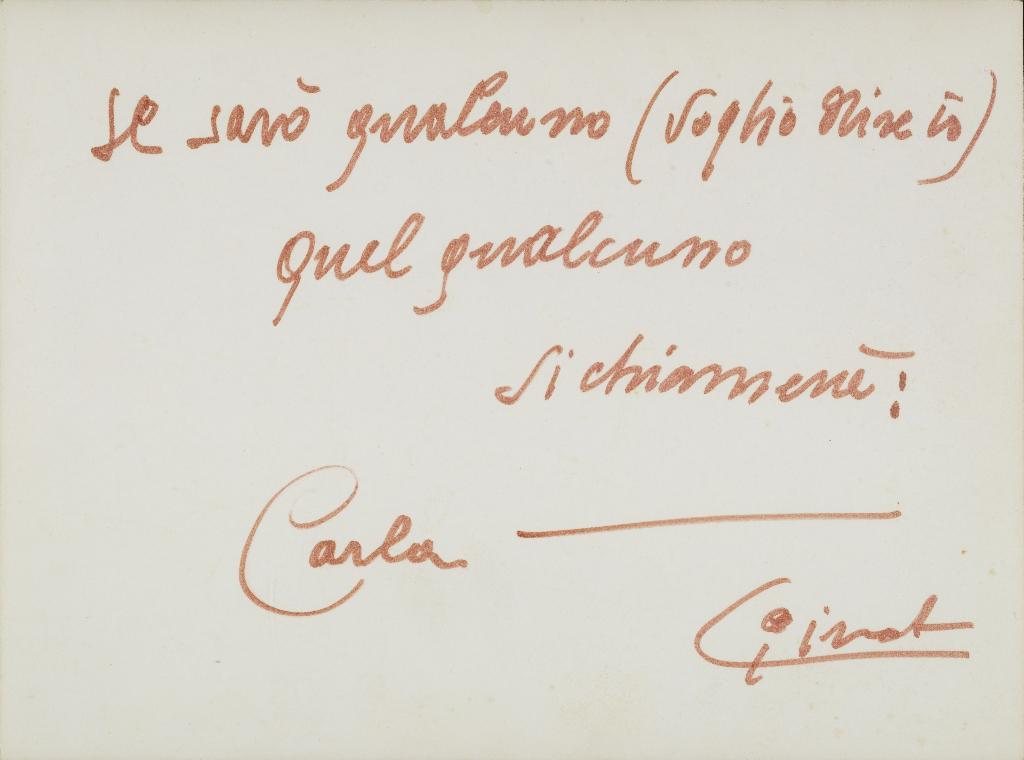 se sarò qualcuno (voglio dire io)
quel qualcuno
si chiamerà:
Carla